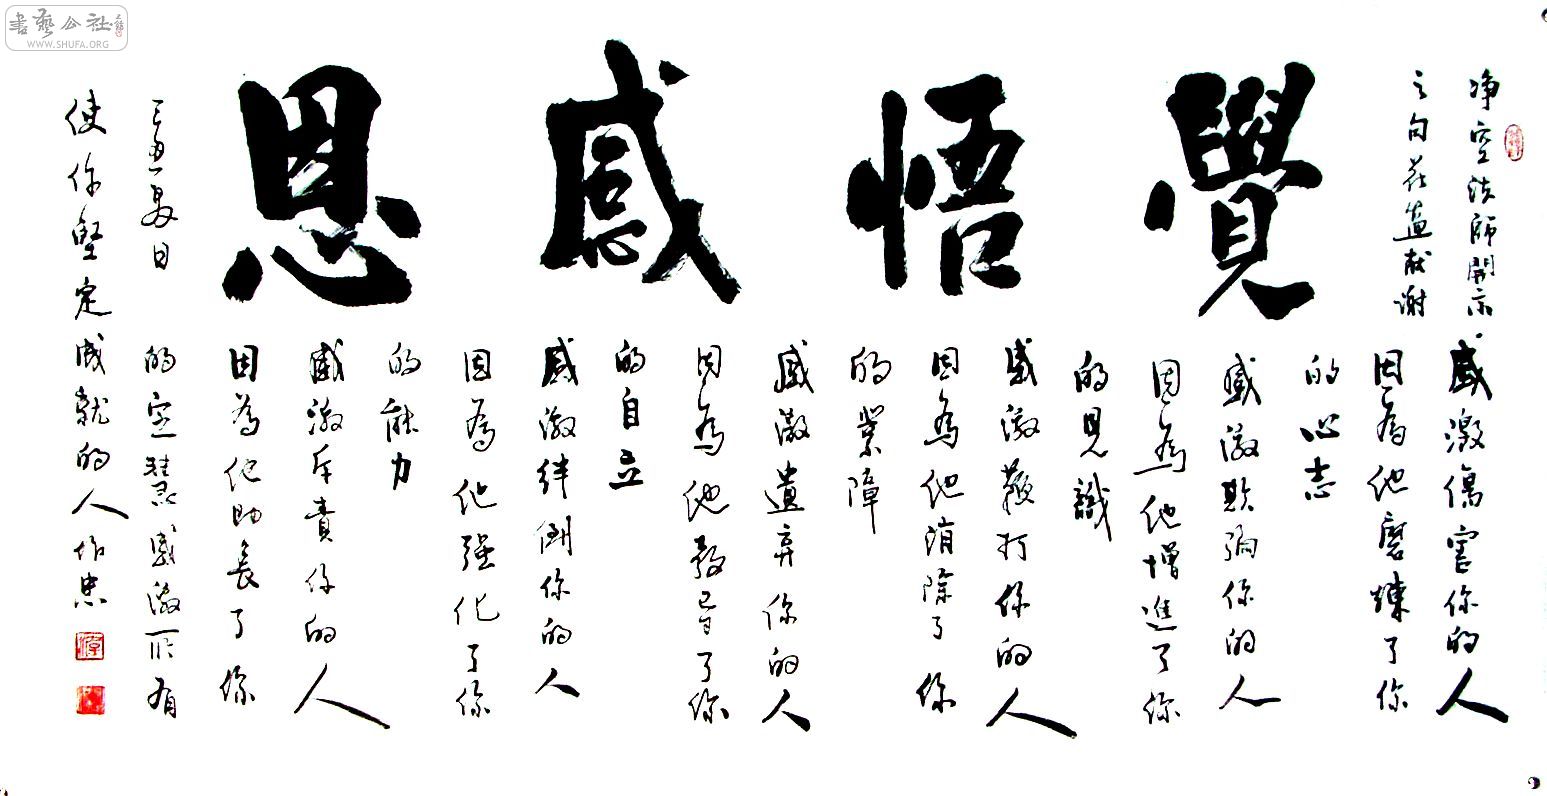 書藝公社
WWW.SHUFA.ORG
覺悟感恩
净空法師開示
之句
感激傷害你的人
因為他磨煉了你
的心志
感激欺骗你的人
因為他增進了你
的見識
感激鞭打你的人
因為他消除了你
的業障
感激遺弃你的人
因為他教导了你
的自立
感激绊倒你的人
因為他强化了你
的能力
感激斥責你的人
因為他助長了你
的定慧感激所有
使你堅定成就的人
己丑夏日